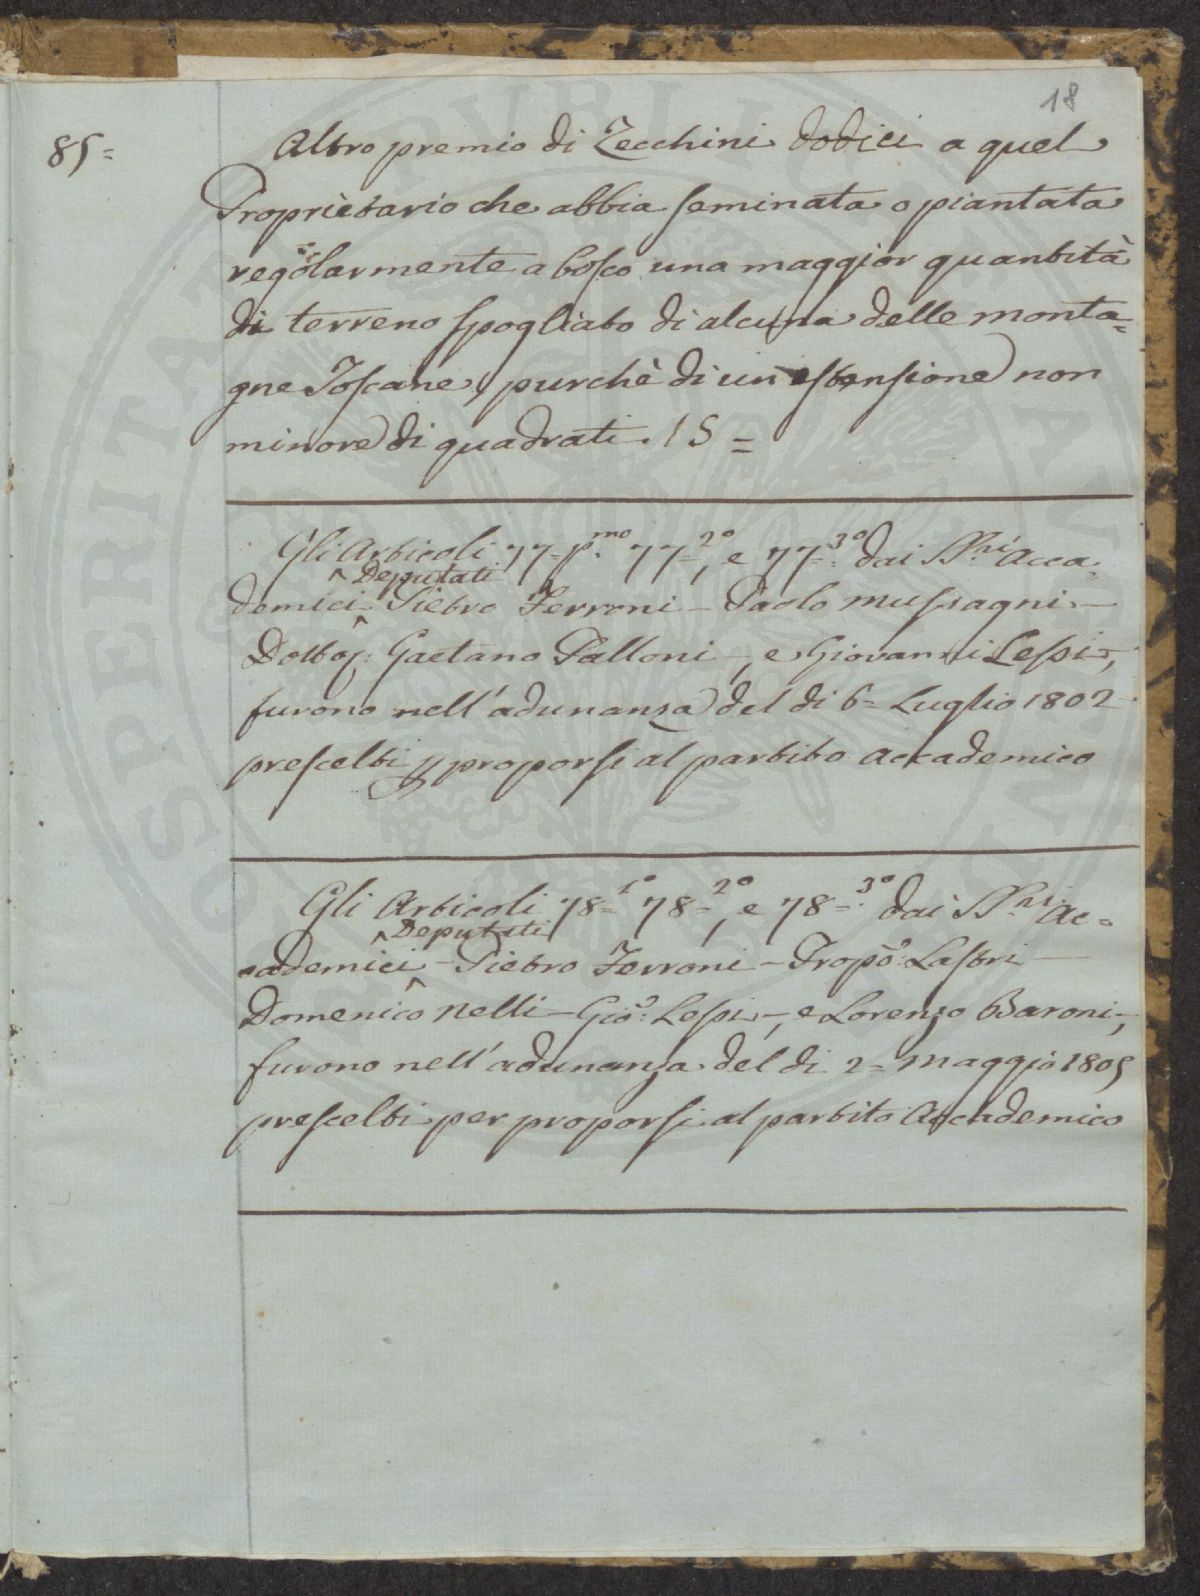 18
85=
Altro premio di Zecchini dodici a quel
Proprietario che abbia seminata o piantata
regolarmente a bosco una maggior quantità
di terreno spogliato di alcuna delle monta=
gne Toscane, purchè di un estensione non
minore di quadrati. 15 =
Gli Articoli 77=p.mo 77=2º, e 77=3º dai SS.ri Acca=
Deputati
demici Pietro Ferroni – Paolo Mussagni –
Dottor: Gaetano Palloni –, e Giovanni Lessi –,
furono nell'adunanza del di 6= Luglio 1802
prescelti p proporsi al partito Accademico
Gli Articoli 78=1º 78=2º, e 78=3º dai SS.ri Ac=
Deputati
cademici – Pietro Ferroni – Propo: Lastri –
Domenico Nelli – Gio: Lessi –, e Lorenzo Baroni –,
furono nell'adunanza del di 2= Maggio 1805
prescelti per proporsi al partito Accademico
SPERITATE PUBLICAE AUGENDAE